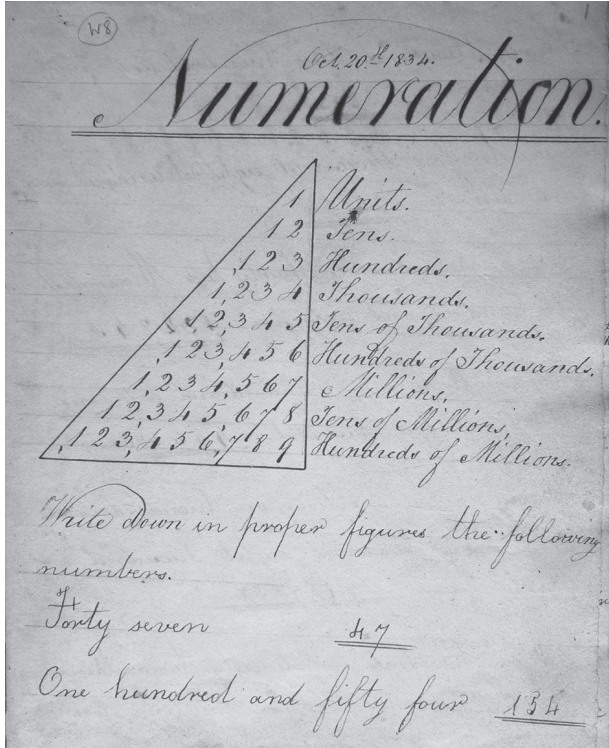 W8
Oct. 20.th 1834.
Numeration.
1 Units.
1 2 Tens.
,1 2 3 Hundreds.
1,2 3 4 Thousands.
1 2,3 4 5 Tens of Thousands.
,1 2 3,4 5 6 Hundreds of Thousands.
1,2 3 4,5 6 7 Millions.
1 2,3 4 5,6 7 8 Tens of Millions,
,1 2 3,4 5 6,7 8 9 Hundreds of Millions.
Write Down in proper figures the following
numbers.
Forty seven 47
One hundred and fifty four 154